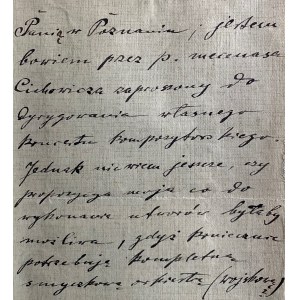 Panią w Poznaniu; jestem
bowiem przez p. mecenasa
Cichowicza zaproszony do
dyrygowania własnego
koncertu kompozytorskiego.
Jednak nie wiem jeszcze, czy
propozycya moja co do
wykonania utworów byłaby
możliwa, gdyż koniecznie
potrzebuję kompletną
smyczkową orkiestrę (wojskową)